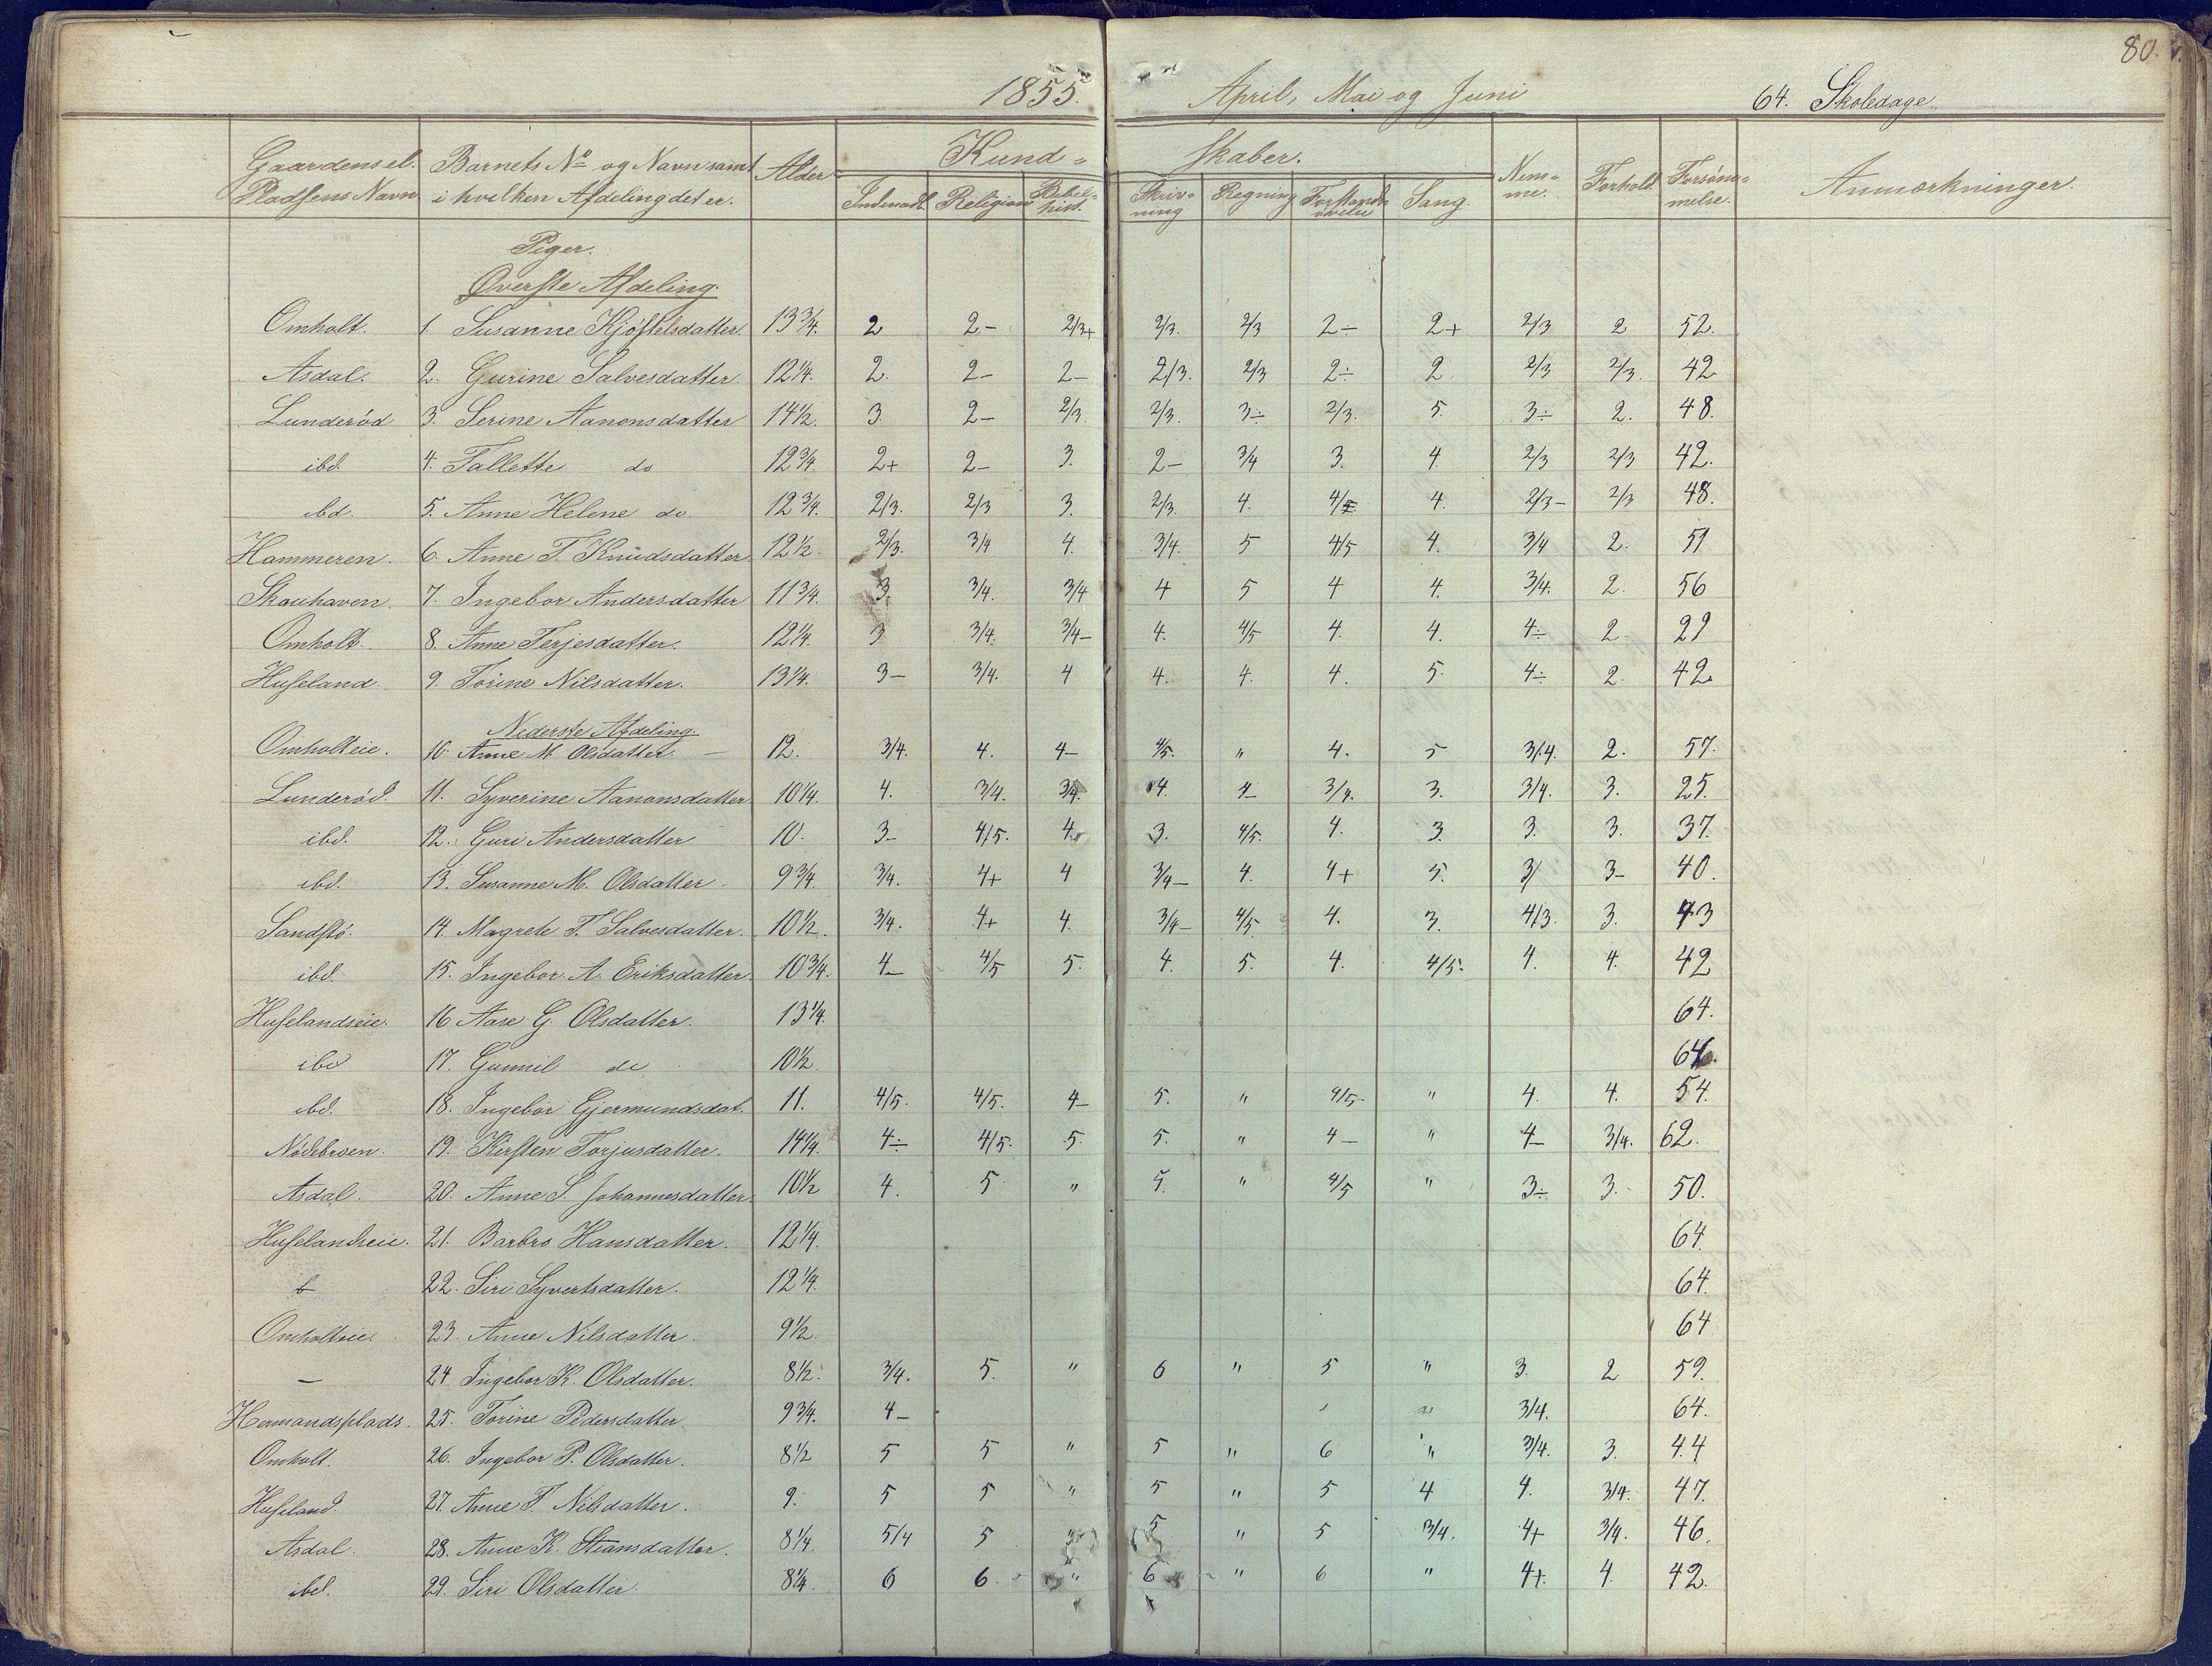 80.
1855. April, Mai og Juni 64. Skoledage.
Gaardens el. Pladsens Navn Barnets No og Navn samt i hvilken Afdeling det er. Alder Kund- skaber. Nem-me. Forhold Forsøm-melse. Anmærkninger.
Indenadl. Religion Bibel-hist. Skriv-ning Regning Forstands-øvelse Sang
Piger.
Øverste Afdeling.
Omholt. 1. Susanne Kjøstelsdatter. 13 3/4. 2 2- 2/3+ 2/3. 2/3 2÷ 2+ 2/3 2 52.
Asdal. 2. Gurine Salvesdatter. 12 1/4. 2. 2- 2- 2/3. 2/3 2÷ 2 2/3 2/3. 42
Lunderød 3. Serine Aanonsdatter 14 1/2. 3. 2- 2/3. 2/3. 3÷ 2/3. 5. 3÷ 2. 48.
ibd. 4. Tallette do 12 3/4. 2+ 2- 3. 2- 3/4 3. 4. 2/3 2/3 42.
ibd. 5. Anne Helene do 12 3/4. 2/3. 2/3 3. 2/3. 4. 4/5 4. 2/3- 2/3 48.
Hammeren. 6. Anne T. Knudsdatter. 12 1/2. 2/3. 3/4 4. 3/4. 5 4/5 4. 3/4 2. 51
Skouhaven. 7. Ingebor Andersdatter 11 3/4. 3. 3/4. 3/4 4 5 4 4. 3/4. 2. 56
Omholt. 8. Anne Terjesdatter. 12 1/4. 3 3/4. 3/4- 4. 4/5 4. 4. 4÷ 2. 29
Huseland. 9. Torine Nilsdatter. 13 1/4. 3- 3/4. 4 4. 4. 4. 5. 4÷ 2. 42.
Nederste Afdeling.
Omholteie. 10. Anne M. Olsdatter. 12. 3/4. 4. 4- 4/5. " 4. 5 3/4. 2. 57.
Lunderød. 11. Syverine Aanonsdatter 10 1/4. 4. 3/4. 3/4. 4. 4- 3/4. 3. 3/4. 3. 25.
ibd. 12. Guri Andersdatter 10. 3- 4/5. 4. 3. 4/5. 4. 3. 3. 3. 37.
ibd. 13. Susanne M. Olsdatter 9 3/4. 3/4. 4+ 4 3/4- 4. 4+ 5. 3/ 3- 40.
Sandstø. 14. Magrete T. Salvesdatter. 10 1/2. 3/4. 4+ 4. 3/4- 4/5. 4. 3. 4/3. 3. 43
ibd. 15. Ingebor A. Eriksdatter 10 3/4. 4- 4/5 5. 4. 5. 4. 4/5. 4. 4. 42
Huselandseie. 16 Aase G Olsdatter. 13 1/4. 64.
ibd 17. Gunnil do 10 1/2. 64.
ibd. 18. Ingebor Gjermundsdat. 11. 4/5. 4/5. 4- 5. " 4/5. " 4. 4. 54.
Nødebroen. 19. Kirsten Torjusdatter. 14 1/4. 4÷ 4/5. 5. 5. " 4- " 4- 3/4. 62.
Asdal. 20. Anne S. Johannesdatter. 10 1/2 4. 5 " 5. " 4/5 " 3÷ 3. 50.
Huselandseie. 21. Barbro Hansdatter. 12 1/4. 64.
22. Siri Syvertsdatter. 12 1/4. 64.
Omholteie. 23. Anne Nilsdatter. 9 1/2. 64
— 24 Ingebor K. Olsdatter. 8 1/2. 3/4. 5. " 6 " 5 " 3. 2 59.
Hermandsplads. 25. Torine Pedersdatter. 9 3/4. 4- 3/4. 64.
Omholt. 26. Ingebor P. Olsdatter. 8 1/2 5 5 " 5 " 6 " 3/4. 3. 44
Huseland. 27. Anne T. Nilsdatter. 9. 5 5 " 5 " 5 4 4. 3/4. 47.
Asdal. 28. Anne K. Stiansdatter. 8 1/4. 5/4 5 " 5 " 5 3/4. 4+ 3/4. 46.
ibd. 29. Siri Olsdatter. 8 1/4. 6 6. " 6 " 6 " 4+. 4. 42.